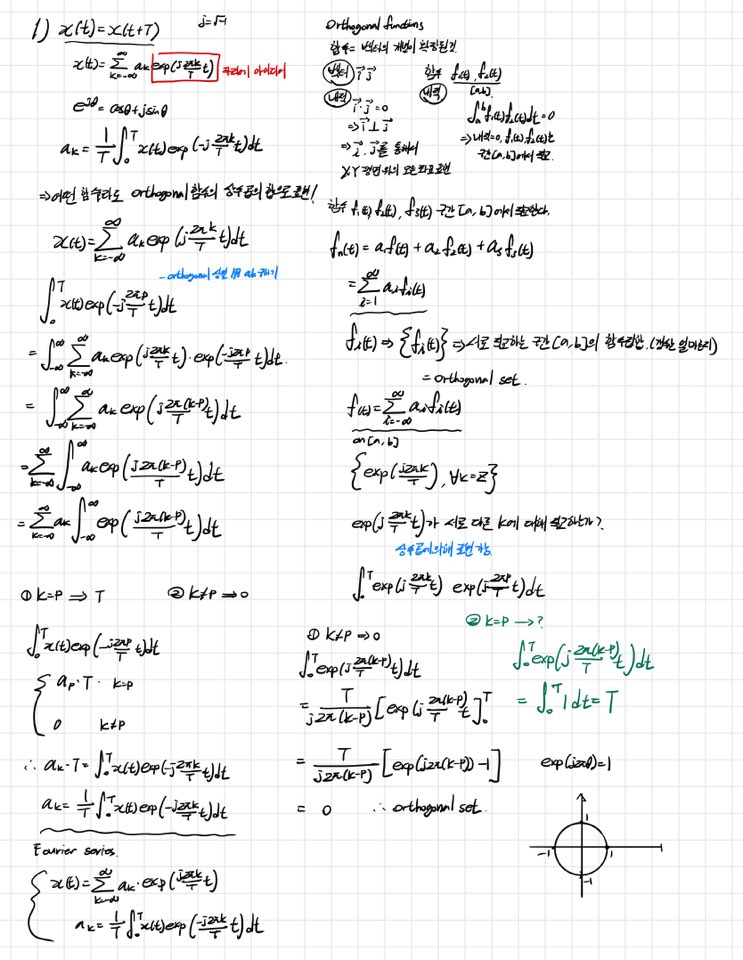 1) x(t)=x(t+T) j=√-1
x(t)=∑_{k=-∞}^{∞} a_k exp(j2πk/T t) 푸리에 아이디어
e^{jθ}=cosθ+jsinθ
a_k=1/T∫_0^T x(t)exp(-j2πk/T t)dt
⇒어떤 함수라도 orthogonal 함수의 상수곱의 합으로 표현!
x(t)=∑_{k=-∞}^{∞} a_k exp(j2πk/T t)dt
-orthogonal 성질 a_k 구하기
∫_0^T x(t)exp(-j2πp/T t)dt
=∫_{-∞}^{∞}∑_{k=-∞}^{∞} a_k exp(j2πk/T t)·exp(-j2πp/T t)dt.
=∫_{-∞}^{∞}∑_{k=-∞}^{∞} a_k exp(j2π(k-p)/T t)dt
=∑_{k=-∞}^{∞}∫_{-∞}^{∞} a_k exp(j2π(k-p)/T t)dt
=∑_{k=-∞}^{∞} a_k∫_{-∞}^{∞} exp(j2π(k-p)/T t)dt
① k=p ⇒ T ② k≠p ⇒ 0
∫_0^T x(t)exp(-j2πp/T t)dt
{ a_p·T · k=p
0 k≠p
∴ a_k·T=∫_0^T x(t)exp(-j2πk/T t)dt
a_k=1/T∫_0^T x(t)exp(-j2πk/T t)dt
Fourier series.
{ x(t)=∑_{k=-∞}^{∞} a_k·exp(j2πk/T t)
a_k=1/T∫_0^T x(t)exp(-j2πk/T t)dt
Orthogonal functions
함수= 벡터의 개념이 확장된것
벡터 i⃗ j⃗ 함수 f₁(t), f₂(t)
[a,b]
내적 i⃗·j⃗=0 내적 ∫_a^b f₁(t)f₂(t)dt=0
⇒i⃗⊥j⃗ ⇒내적=0, f₁(t), f₂(t)는
⇒i⃗, j⃗를 통해서 구간[a,b]에서 직교.
X,Y 평면위의 모든좌표 표현
함수 f₁(t), f₂(t), f₃(t) 구간 [a, b]에서 직교한다.
f_n(t)=a₁f(t)+a₂f₂(t)+a₃f₃(t)
=∑_{i=1}^{∞} a_i f_i(t)
f_i(t)⇒{f_i(t)}⇒서로 직교하는 구간[a,b]의 함수집합.
=orthogonal set.
f(t)=∑_{i=-∞}^{∞} a_i f_i(t)
on[a,b]
{exp(j2πk/T), ∀k=Z}
exp(j2πk/T t)가 서로 다른 k에 대해 직교하는가?
상수곱에의해 표현 함.
∫_0^T exp(j2πk/T t) exp(-j2πp/T t)dt
① k≠p ⇒0 ② k=p →?
∫_0^T exp(j2π(k-p)/T t)dt ∫_0^T exp(j2π(k-p)/T t)dt
=T/j2π(k-p)[exp(j2π(k-p)/T t]_0^T =∫_0^T 1dt=T
=T/j2π(k-p)[exp(j2π(k-p))-1] exp(j2πθ)=1
= 0 ∴orthogonal set.
1
-1 1
-1